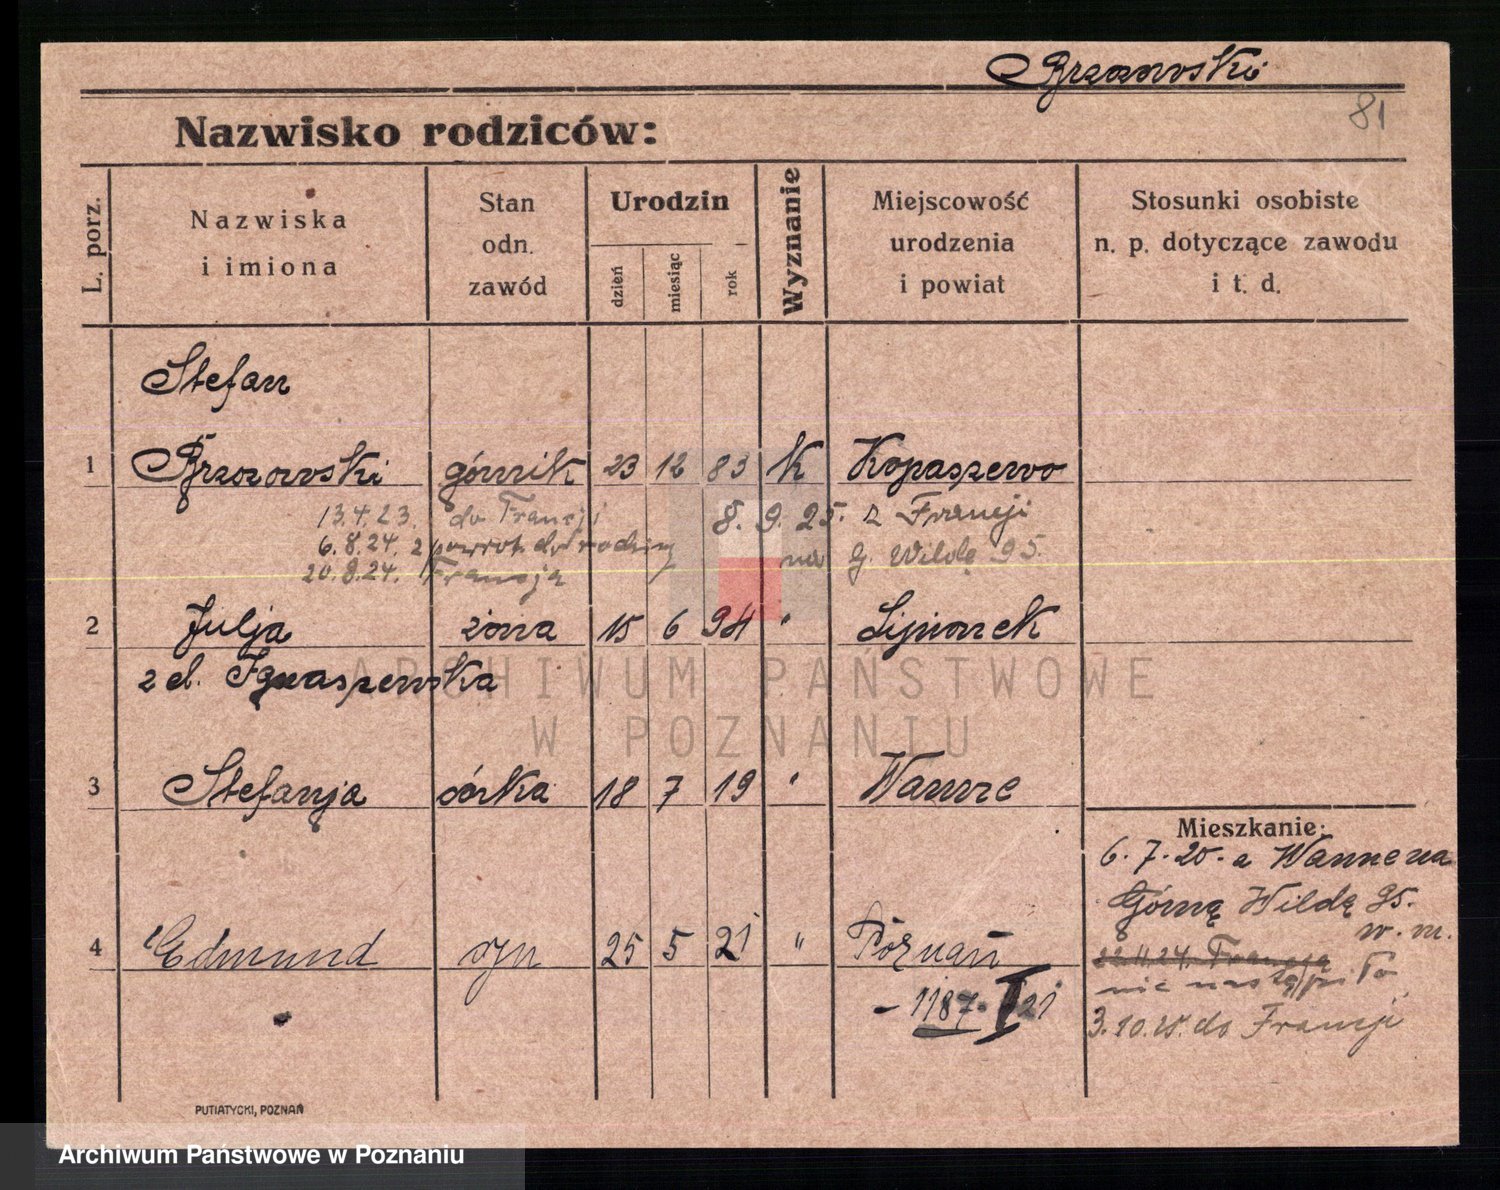 Brzozowski
81
Nazwisko rodziców:
L. porz.
Nazwiska
i imiona
Stan
odn.
zawód
Urodzin
dzień
miesiąc
rok
Wyznanie
Miejscowość
urodzenia
i powiat
Stosunki osobiste
n. p. dotyczące zawodu
i t. d.
Stefan
1 Brzozowski górnik 23 12 83 k Kopaszewo
13.4.23. do Francji 8. 9. 25. z Francji
6.8.24. z powrot. do rodziny na G. Wildę 95.
20.8.24. Francja
2 Julja żona 15 6 94 " Lipionek
z d.
ARCHIWUM PAŃSTWOWE
W POZNANIU
3 Stefanja córka 18 7 19 " Wanne
Mieszkanie:
6. 7. 20. a Wanne na
Górną Wildę 95.
w. m.
4 Edmund syn 25 5 21 " Poznań
22.11.24. Francja
nie nastąpiło
- 1187. I 21
3.10.25. do Francji
PUTIATYCKI, POZNAŃ
Archiwum Państwowe w Poznaniu